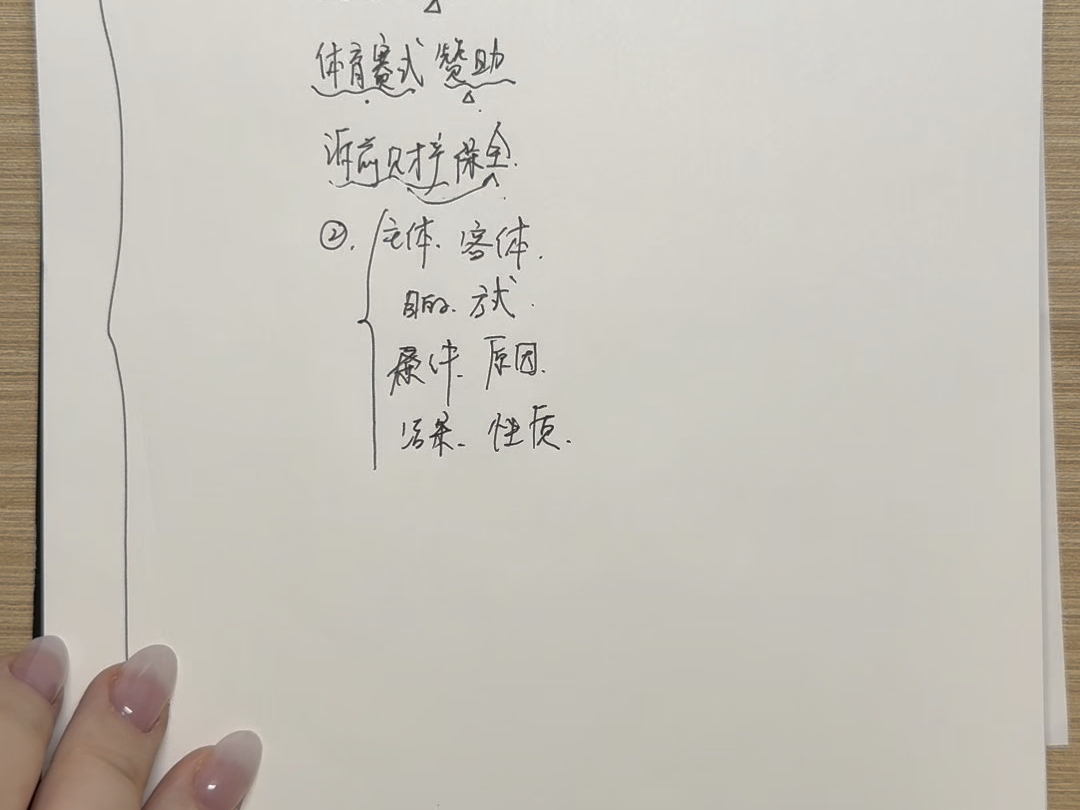 体育赛式 赞助
诉前财产保全.
②. 主体. 客体.
目的. 方式.
条件. 原因.
结果. 性质.